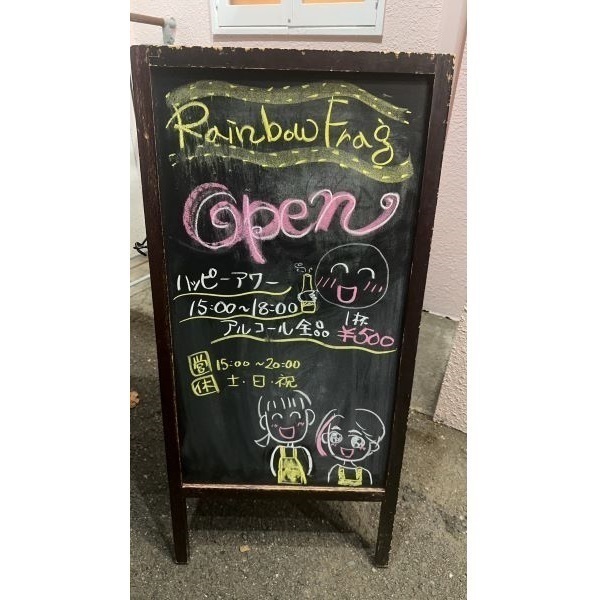 Rainbow Frog
Open
ハッピーアワー
15:00～18:00
アルコール全品
1杯
¥500
営 15:00～20:00
休 土・日・祝